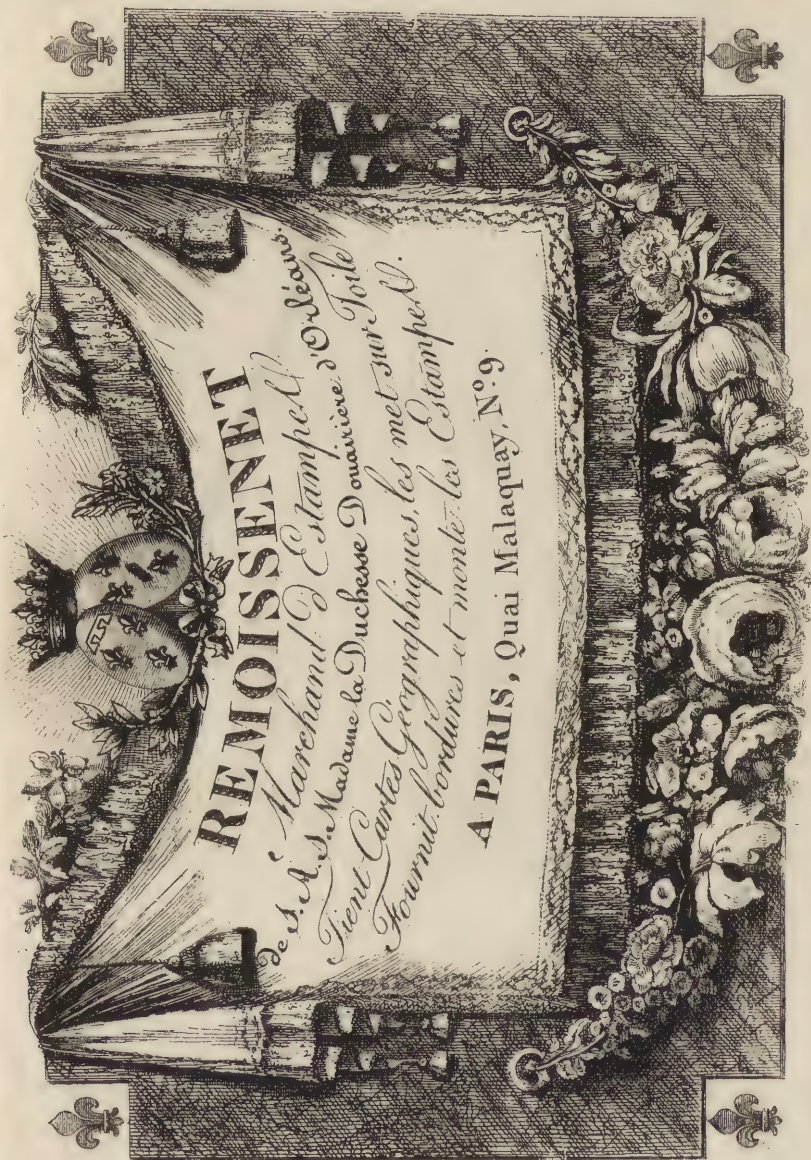 REMOISSENET
Marchand d'Estampes
de S. A. S. Madame la Duchesse Douairiere d'Orléans.
Tient Cartes Géographiques, les met sur Toile
Fournit bordures et monte les Estampes.
A PARIS, Quai Malaquay, Nº. 9.